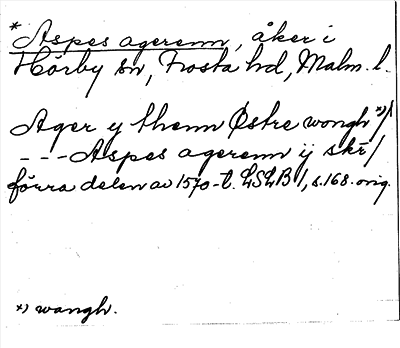 * Aspes agerenn, åker i
Hörby sn, Frosta hd, Malm. l.
Ager y thenn Østre wongh *)/
- - - Aspes agerenn ij skr/
förra delen av 1570-t. LSLB 1, s. 168. orig.
*) wangh.